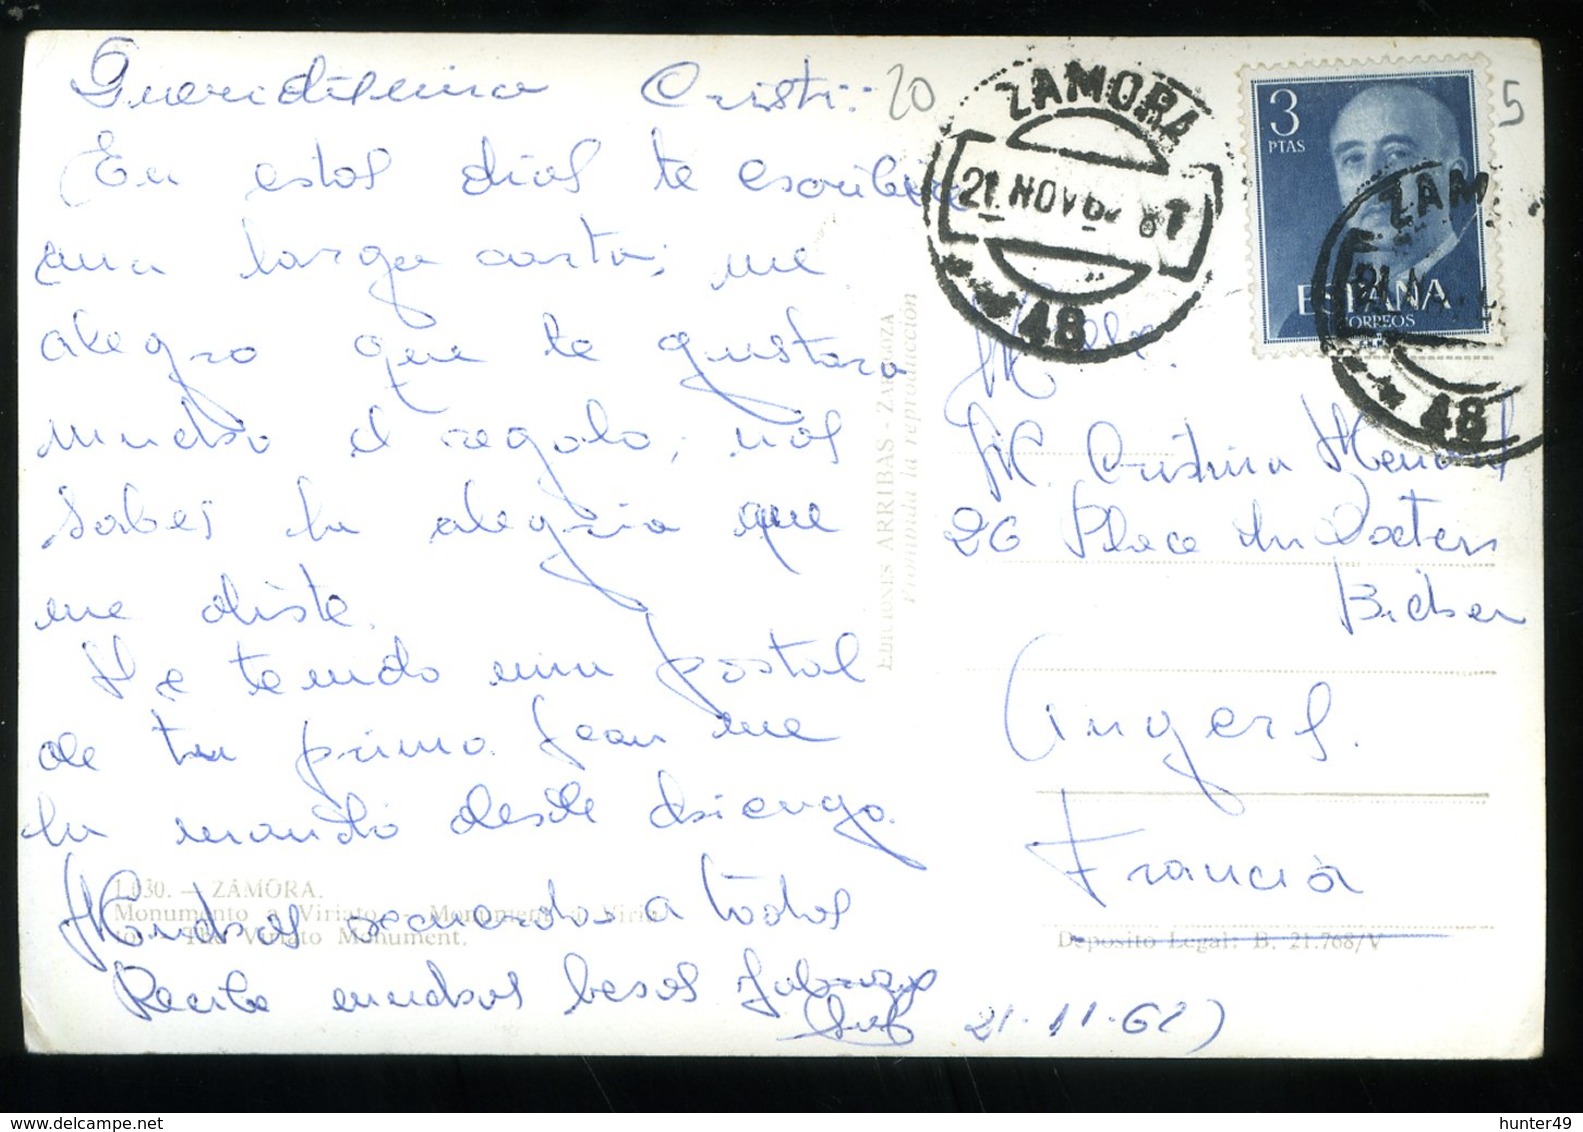 Queridísima Cristi:
En estos días te escribiré
una larga carta; me
alegro que te gustara
mucho el regalo, nos
sabes la alegría que
me diste.
He tenido una postal
de tu primo Jean me
la mandó desde
Muchos recuerdos a todos
Recibe muchos besos
21-11-62)
20
5
ZAMORA
21 NOV 62 8T
48
3
PTAS
ESPAÑA
CORREOS
ZAM
21 N
48
Mlle.
M. Cristina
26 Place du Docteur
Bichon
Angers.
Francia
EDICIONES ARRIBAS - ZARAGOZA
Prohibida la reproducción
1.030. — ZAMORA.
Monumento a Viriato. — Monument à Viria-
to. — The Viriato Monument.
Depósito Legal: B. 21.768/V
hunter49